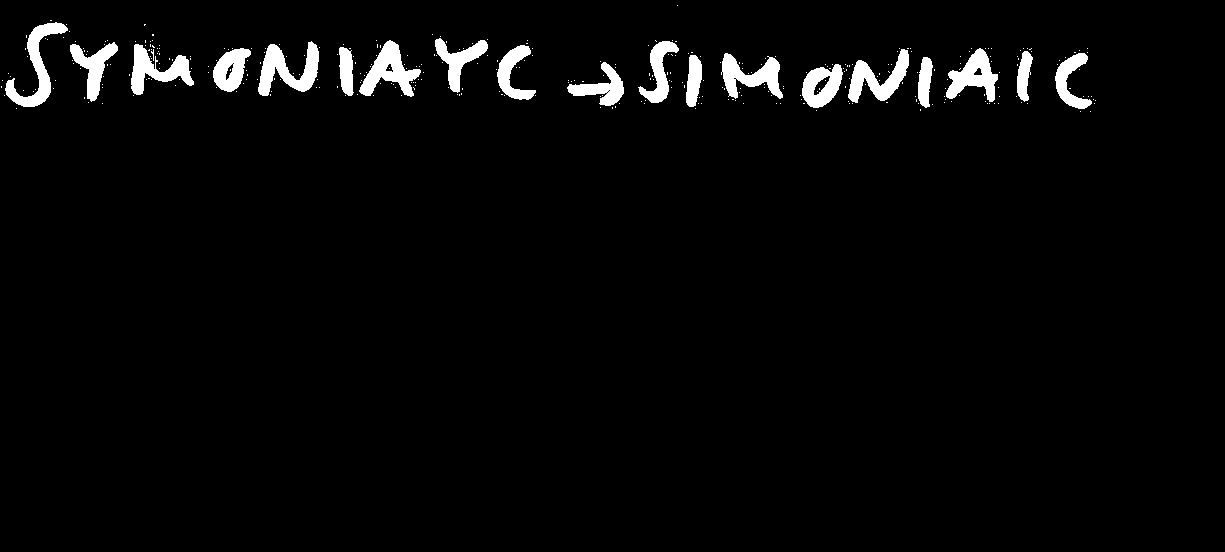 SYMONIAYC → SIMONIAIC